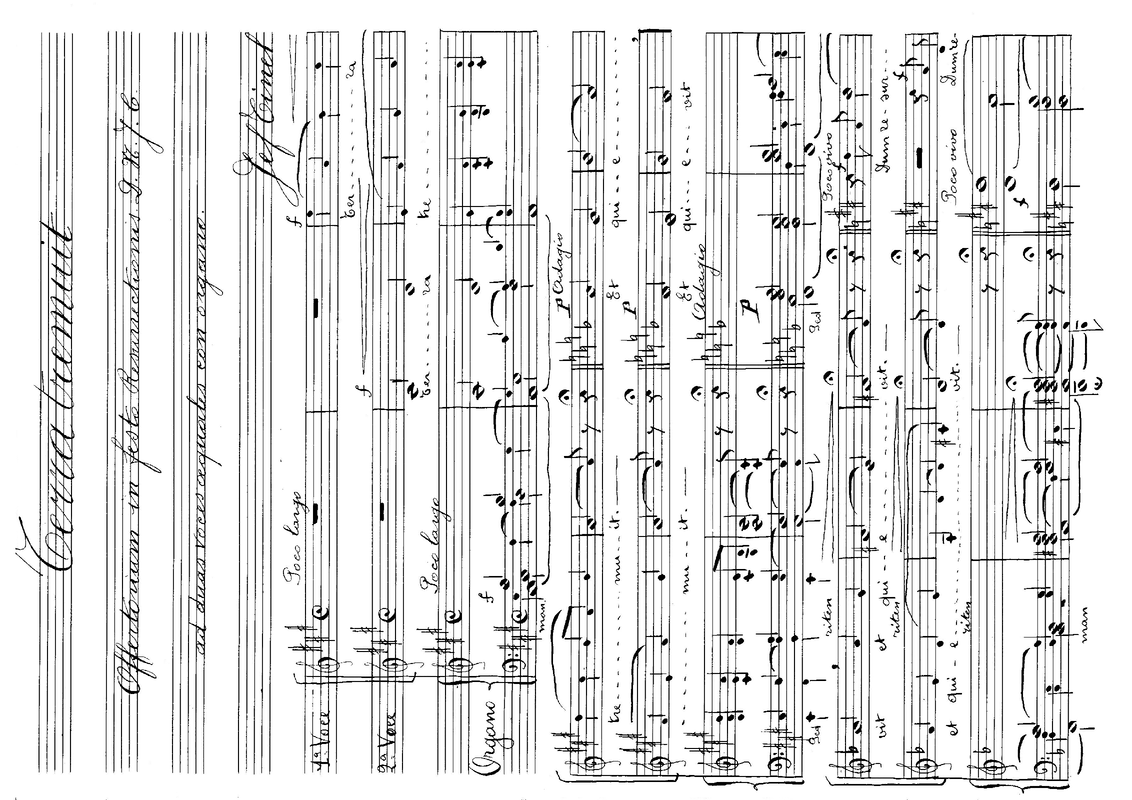 Terra tremuit
Offertorium in festo Resurrectionis D. N. J. C.
ad duas voces aequales con organo.
Jef Tinel
Poco largo f
1a Voce
Ter - - - - ra
f
2a Voce Ter - - - - ra tre - - - -
Poco largo
Organo
f
man.
p Adagio
tre - - - - mu - - it. Et qui - - e - -
p
- - - - mu - - it. Et qui - - e - - vit
Adagio
p
Ped Ped
riten Poco vivo
vit et qui - e - - - - vit. Dum re - sur -
riten f
et qui - e - - - - vit. Dum re -
riten Poco vivo
f
man